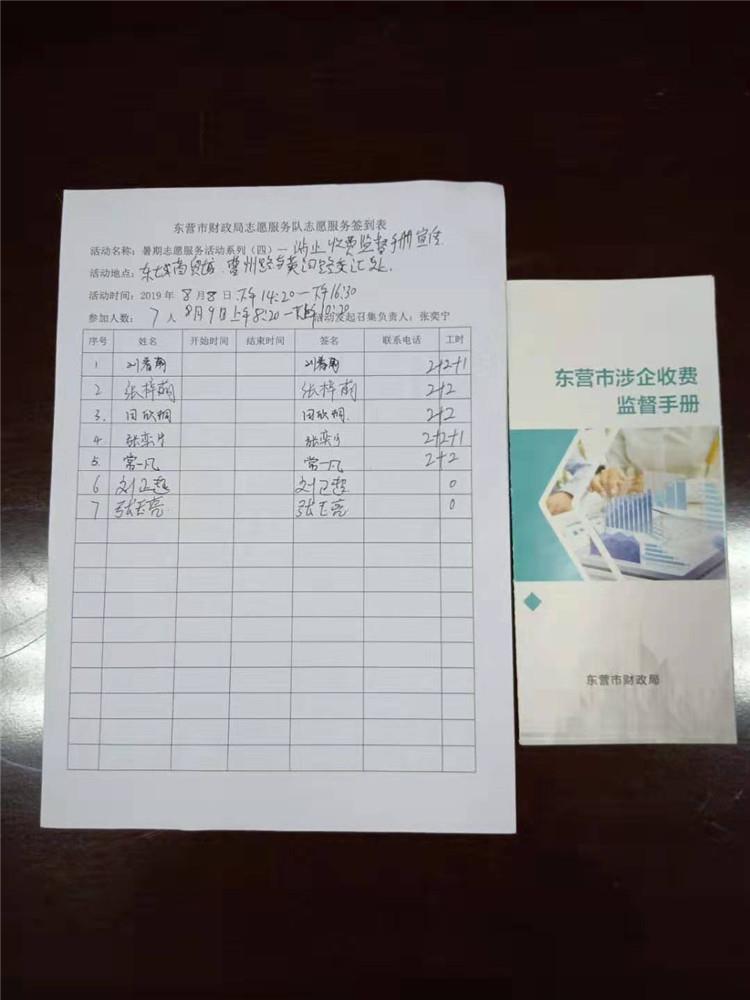 东营市财政局志愿服务队志愿服务签到表
活动名称：暑期志愿服务活动系列（四）—涉企收费监督手册宣传
活动地点：东城商贸城 曹州路与黄河路交汇处.
活动时间：2019 年 8月8日 下午14:20—下午16:30
参加人数： 7 人 8月9日上午8:20— 10:20 活动发起召集负责人：张奕宁
序号 姓名 开始时间 结束时间 签名 联系电话 工时
1 刘 2+2+1
2 张梓萌 张梓萌 2+2
3. 田欣桐 田欣桐. 2+2
4 张奕 张奕 2+2+1
5. 常一凡 常一凡 2+2
6 刘正超 刘正超 0
7 张玉亮 张玉亮 0
东营市涉企收费
监督手册
东营市财政局